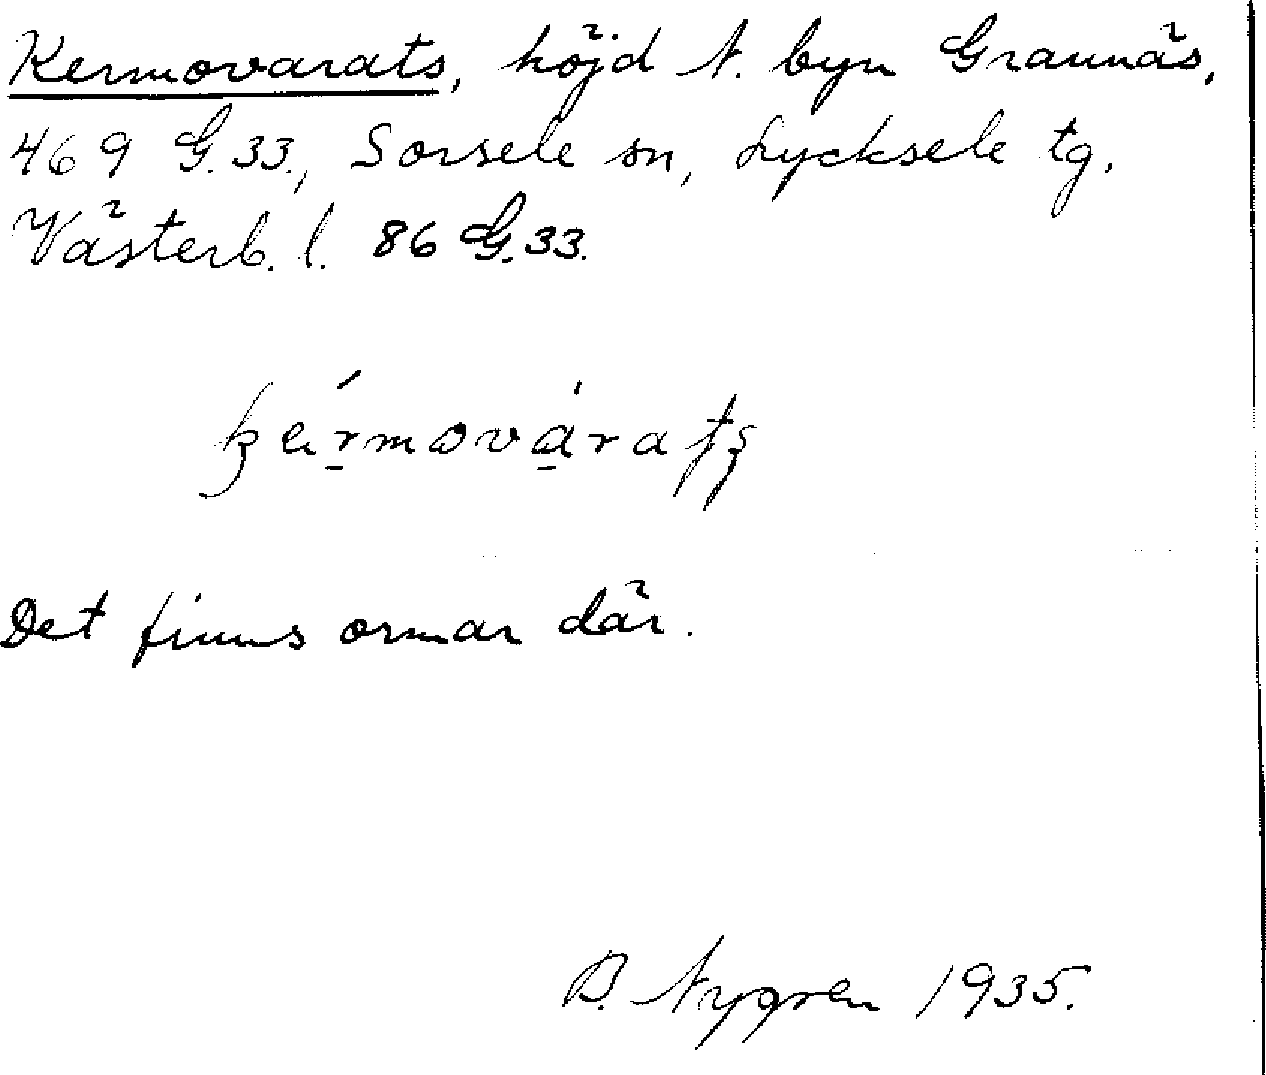 Kermovarats, höjd N. byn Graunäs,
469 G.33., Sorsele sn, Lycksele tg.
Västerb. l. 86 G.33.
Det finns ormar där.
B. Nygren 1935.